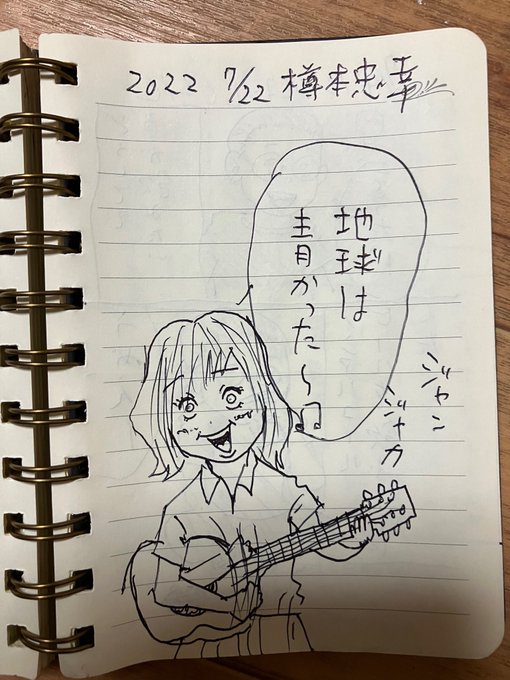 2022 7/22 樽本忠幸
地球は
青かったら〜♫
ジャン
ジャカ